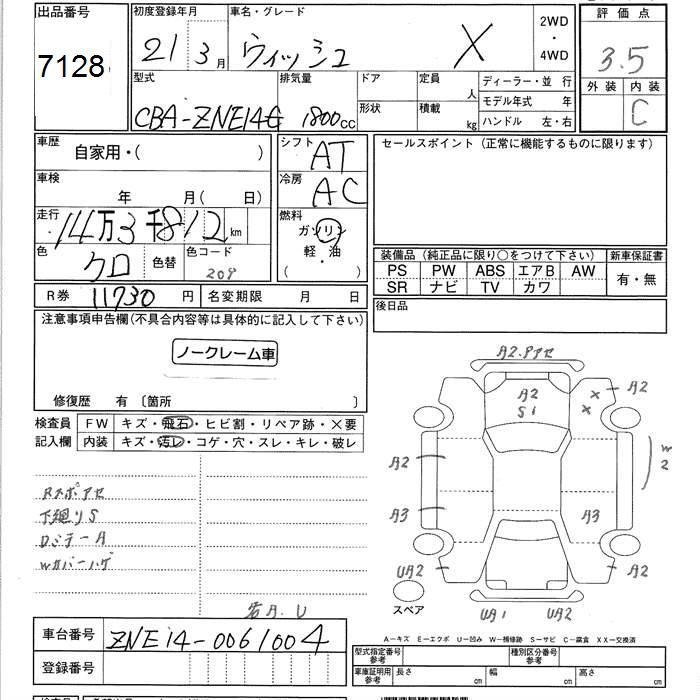 出品番号
7128
初度登録年月
21 3月
車名・グレード
ウィッシュ X
2WD
・
4WD
評価点
3.5
外装 内装
C
型式
CBA-ZNE14G
排気量
1800cc
ドア
形状
定員
人
積載
kg
ディーラー・並行
モデル年式 年
ハンドル 左・右
車歴
自家用・( )
車検
年 月( 日)
走行
14万3千812km
色
クロ
色替
色コード
209
シフト
AT
冷房
AC
燃料
ガソリン
・
軽油
( )
セールスポイント(正常に機能するものに限ります)
装備品(純正品に限り○をつけて下さい)
PS PW ABS エアB AW
SR ナビ TV カワ
新車保証書
有・無
R券 11730円
名変期限 月 日
後日品
注意事項申告欄(不具合内容等は具体的に記入して下さい)
ノークレーム車
修復歴 有 〔箇所 〕
検査員
記入欄
FW キズ・飛石・ヒビ割・リペア跡・×要
内装 キズ・汚レ・コゲ・穴・スレ・キレ・破レ
Rスポアセ
下廻りS
DミラーA
Wカバーハゲ
若A.U
A2.Pアセ
A2
S1
×
×
A2
A2
W
2
A3
A3
UA2
UA2
UA1 UA2
スペア
A-キズ E-エクボ U-凹み W-補修跡 S-サビ C-腐食 XX-交換済
車台番号
ZNE14-0061004
登録番号
型式指定番号
参考
種別区分番号
参考
車庫証明用
参考
長さ cm
幅 cm
高さ cm